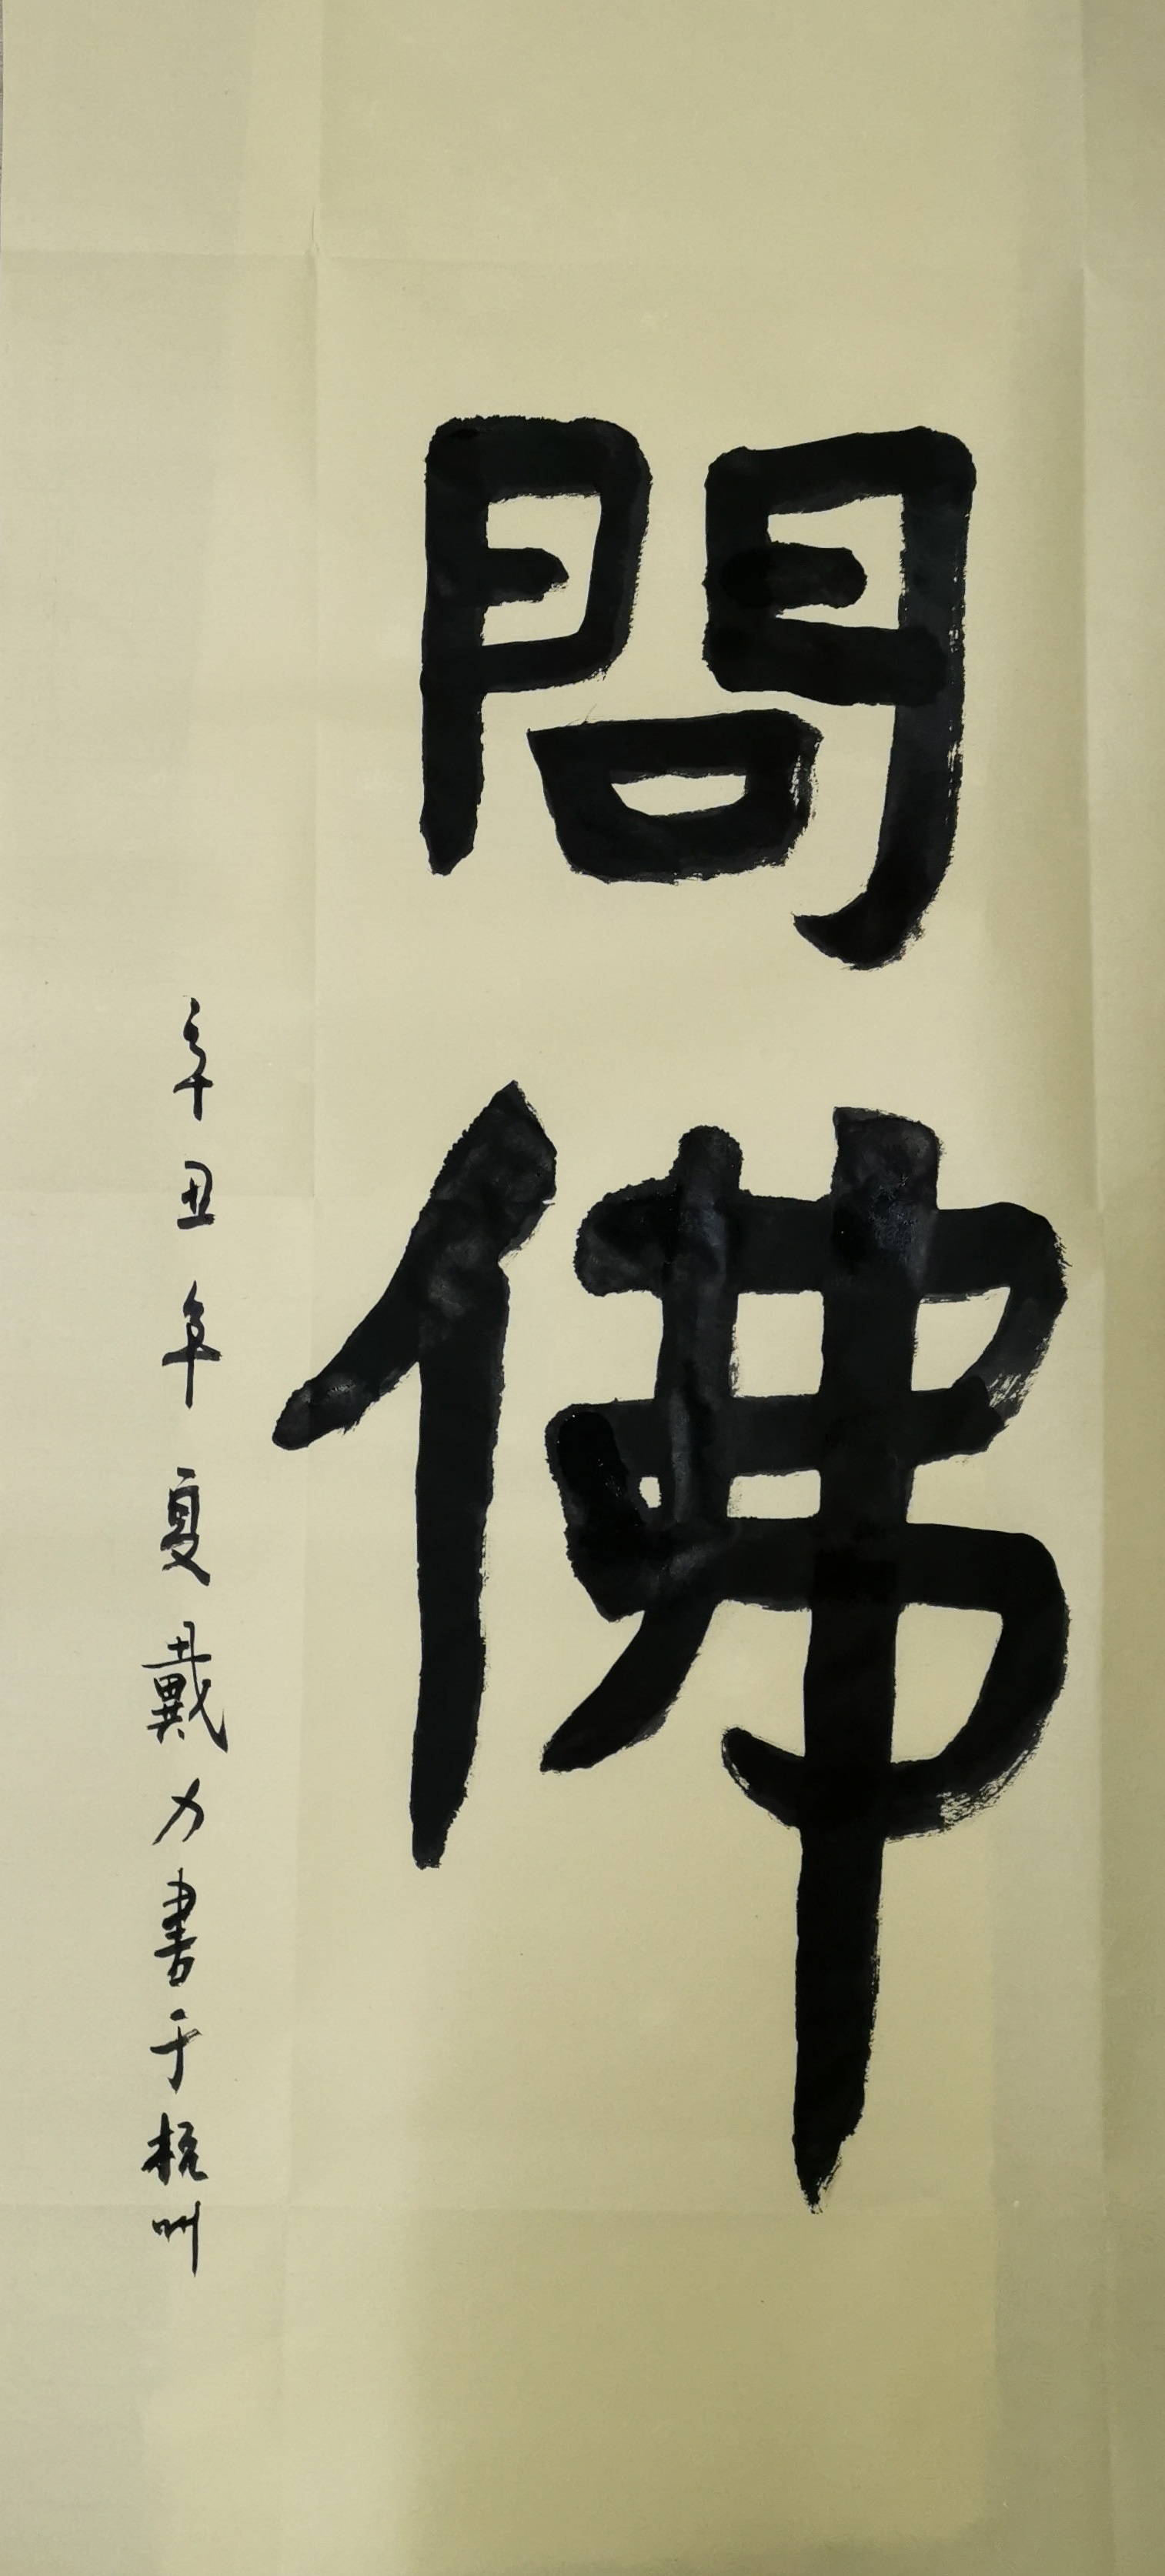 問佛
辛丑年夏戴力書于杭州